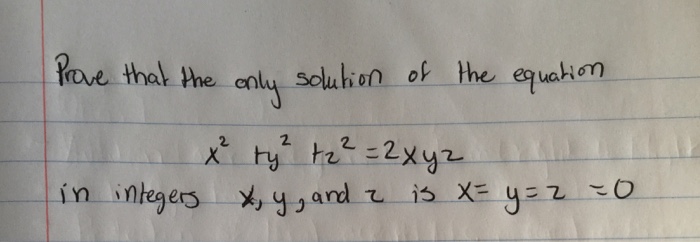 Prove that the only solution of the equation
x² + y² + z² = 2xyz
in integers x, y, and z is x = y = z = 0